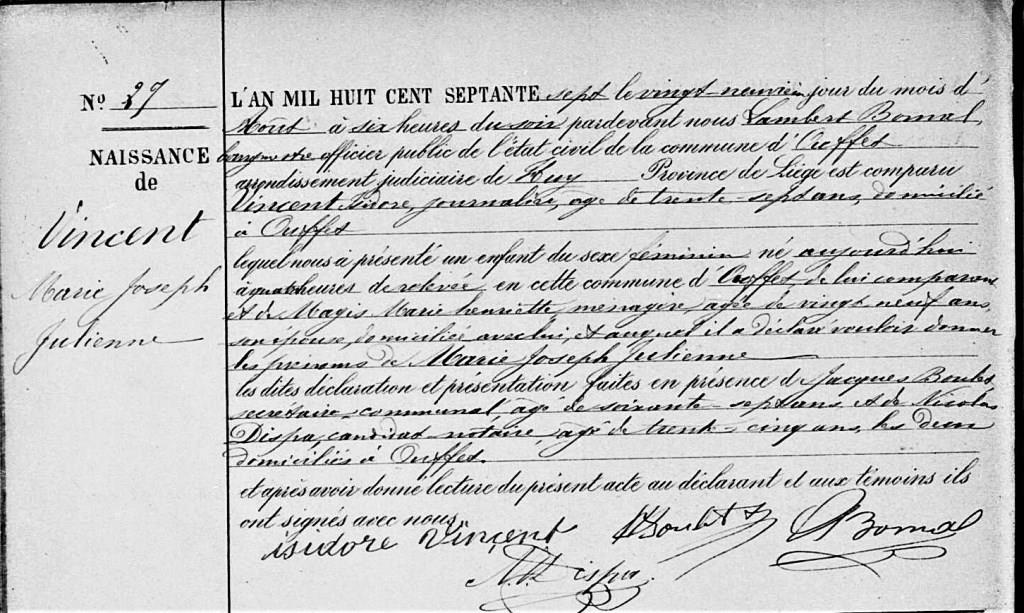 Nº 27
NAISSANCE
de
Vincent
Marie Joseph
Julienne
L'AN MIL HUIT CENT SEPTANTE sept le vingt-neuvième jour du mois d'
Août à six heures du soir pardevant nous Lambert Bomal,
bourgmestre officier public de l'état civil de la commune d'Ouffet
arrondissement judiciaire de Huy Province de Liège est comparu
Vincent Isidore journalier, âgé de trente-sept ans, domicilié
à Ouffet
lequel nous a présenté un enfant du sexe féminin né aujourd'hui
à quatre heures de relevée en cette commune d'Ouffet, de lui comparant
et de Magis Marie henriette, ménagère, âgée de vingt neuf ans,
son épouse, domiciliée avec lui, et auquel il a déclaré vouloir donner
les prénoms de Marie Joseph Julienne
les dites déclaration et présentation faites en présence d Jacques
secrétaire communal, âgé de soixante-sept ans et de Nicolas
Dispa, candidat notaire, âgé de trente-cinq ans, les deux
domiciliés à Ouffet
et après avoir donné lecture du présent acte au déclarant et aux témoins ils
ont signés avec nous.
isidore Vincent
Bomal
Dispa